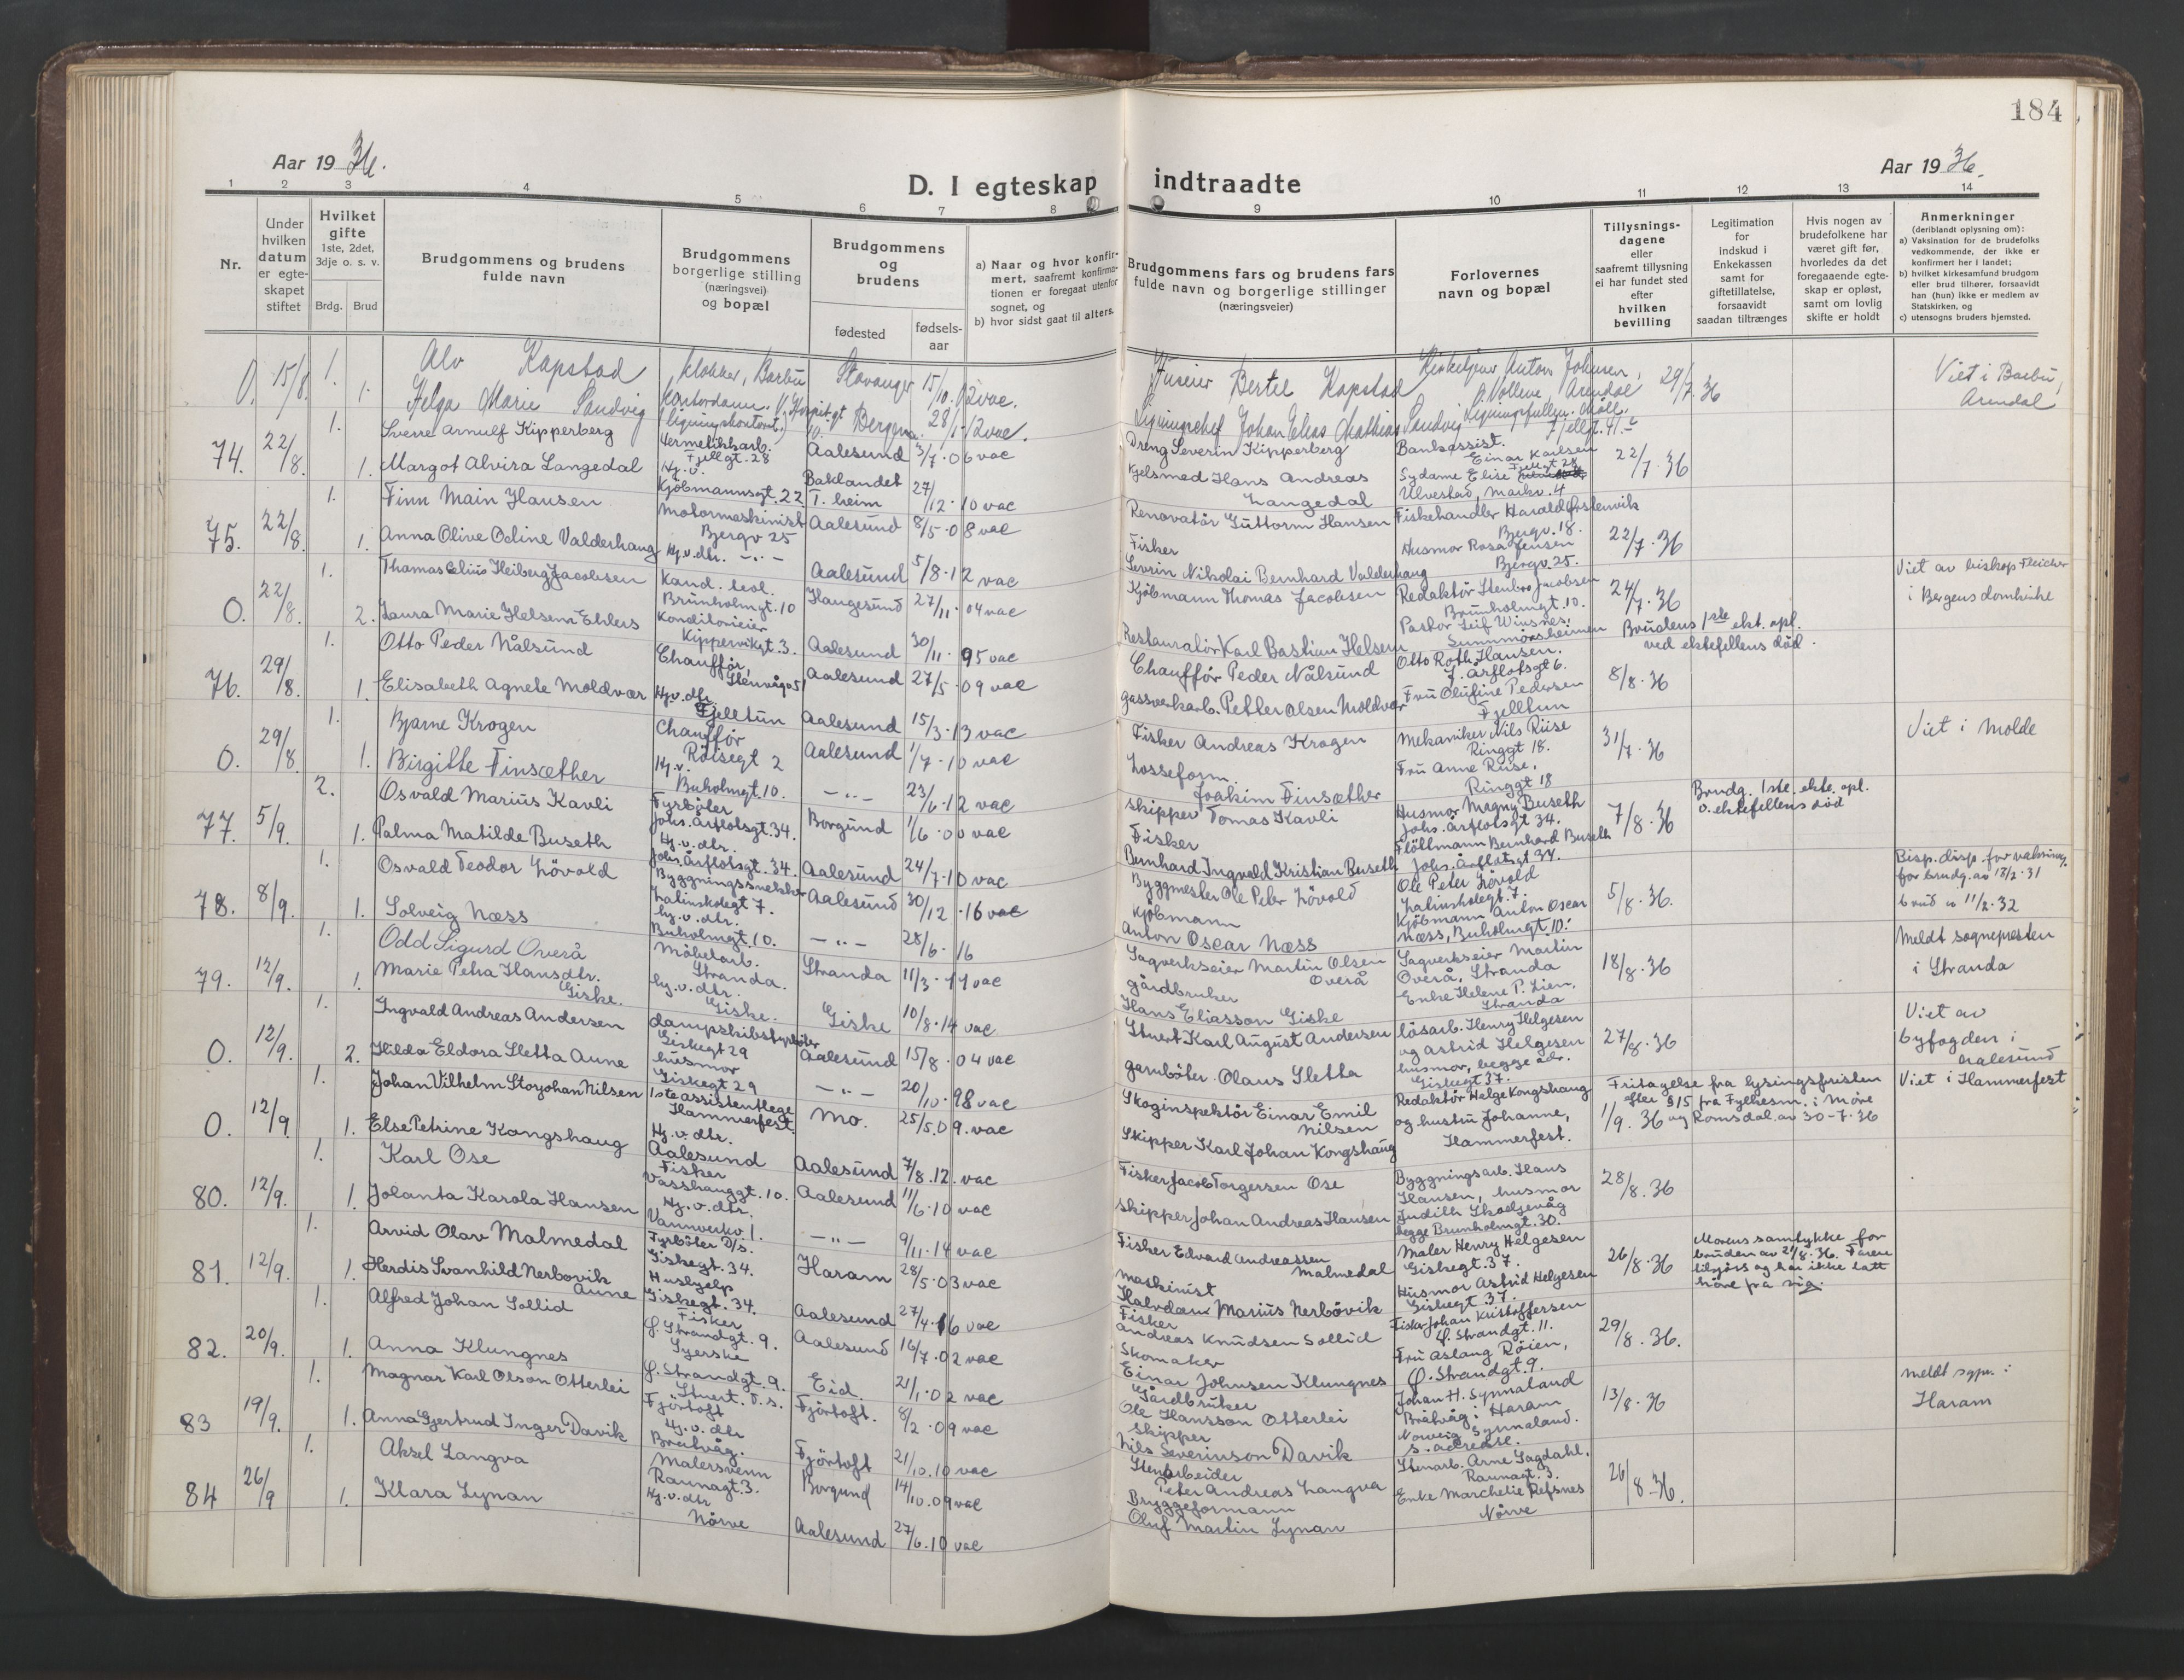 184
Aar 1936.
D. I egteskap indtraadte
Aar 1936.
1 2 3 4 5 6 7 8 9 10 11 12 13 14
Nr.
Under hvilken datum er egteskapet stiftet
Hvilket gifte 1ste, 2det, 3dje o. s. v.
Brdg. Brud
Brudgommens og brudens fulde navn
Brudgommens borgerlige stilling (næringsvei) og bopæl
Brudgommens og brudens
fødested
fødselsaar
a) Naar og hvor konfirmert, saafremt konfirmationen er foregaat utenfor sognet, og
b) hvor sidst gaat til alters.
Brudgommens fars og brudens fars fulde navn og borgerlige stillinger (næringsveier)
Forlovernes navn og bopæl
Tillysningsdagene eller saafremt tillysning ei har fundet sted efter hvilken bevilling
Legitimation for indskud i Enkekassen samt for giftetillatelse, forsaavidt saadan tiltrænges
Hvis nogen av brudefolkene har været gift før, hvorledes da det foregaaende egteskap er opløst, samt om lovlig skifte er holdt
Anmerkninger (deriblandt oplysning om):
a) Vaksination for de brudefolks vedkommende, der ikke er konfirmert her i landet;
b) hvilket kirkesamfund brudgom eller brud tilhører, forsaavidt han (hun) ikke er medlem av Statskirken, og
c) utensogns bruders hjemsted.
0. 15/8. 1. Alv Kapstad Klokker, Barbu Stavanger 15/10.02 vac. Huseier Bertel Kapstad Kirketjener Anton Johnsen, Arendal 29/7.36 Viet i Barbu, Arendal
1. Helga Marie Sandvig Kontordame. Bergen 28/1.12 vac. Ligningschef Johan Elias Mathias Sandvig
74. 22/8. 1. Sverre Arnulf Kipperberg Hermetikkarb. Fjellgt. 28 Aalesund 3/7.06 vac Dreng Severin Kipperberg Bankassist. Einar Karlsen Fjellgt 28 22/7.36
1. Margot Alvira Langedal Hj.v. Kjöbmannsgt. 22 Baklandet T.heim 27/12.10 vac Kjelsmed Hans Andreas Langedal Sydame Elise Ulvestad, Markv. 4
75. 22/8. 1. Finn Main Hansen Motormaskinist Bjergv 25 Aalesund 8/5.08 vac Renovatör Guttorm Hansen Fiskehandler Harald Bjergv. 18. 22/7.36
1. Anna Olive Odine Valderhaug Hj.v.dtr. -"- Aalesund 5/8.12 vac Fisker Sevrin Nikolai Bernhard Valderhaug Husmor Rosa Jensen Bjergv. 25.
0. 22/8. 1. Thomas Elius Heiberg Jacobsen Kand. teol. Brunholmgt. 10 Haugesund 27/11.04 vac Kjöbmann Thomas Jacobsen Redaktör Stenbro Jacobsen Brunholmgt. 10. 24/7.36 Viet av biskop Fleicher i Bergens domkirke
2. Laura Marie Helsem Ehlers Konditorieier Kippervikgt. 3. Aalesund 30/11.95 vac Restauratör Karl Bastian Helsem Pastor Leif Winsnes, Sunnmörsheimen Brudens 1ste ekt. opl. ved ektefellens död.
76. 29/8. 1. Otto Peder Nålsund Chauffför, Stenvågv 51 Aalesund 27/5.09 vac Chaufför Peder Nålsund Otto Roth Hansen. J. Aarflotsgt 6. 8/8.36
1. Elisabeth Agnete Moldvær Hj.v.dtr. Fjelltun Aalesund 15/3.13 vac Gassverkarb. Petter Olsen Moldvær Fru Olufine Pedersen Fjelltun
0. 29/8. 1. Bjarne Krogen Chaufför Röisegt 2 Aalesund 1/7.10 vac Fisker Andreas Krogen Mekaniker Nils Riise Ringgt 18. 31/7.36 Viet i Molde
1. Birgitte Finsæther Hj.v. Buholmgt. 10. -"- 23/6.12 vac Losseform. Joakim Finsæther Fru Anne Riise, Ringgt 18
77. 5/9. 2. Osvald Marius Kavli Fyrböter Johs. Årflotsgt. 34. Borgund 1/6.00 vac Skipper Tomas Kavli Husmor Magny Buseth Johs. Årflotsgt 34. 7/8.36 Brudg. 1ste. ekte. opl. v. ektefellens död
1. Palma Matilde Buseth Hj.v.dtr. Johs. Årflotsgt. 34. Aalesund 24/7.10 vac Fisker Bernhard Ingvald Kristian Buseth Flöttmann Bernhard Buseth Johs. Årflotsgt 34.
78. 8/9. 1. Osvald Teodor Lövold Byggningssnekker Latinskolegt 7. Aalesund 30/12.16 vac Byggmester Ole Peter Lövold Ole Peter Lövold Latinskolegt. 7. 5/8.36. Bisp. disp. for vaksinasj. for brudg. av 18/2.31 brud " 11/2.32
1. Solveig Næss hj.v.dtr. Buholmgt. 10. -"- 28/6.16 Kjöbmann Anton Oscar Næss Kjöbmann Anton Oscar Næss, Buholmgt. 10.
79. 12/9. 1. Odd Sigurd Overå Möbelarb. Stranda. Stranda 11/3.11 vac Sagverkseier Martin Olsen Overå Sagverkseier Martin Overå, Stranda 18/8.36 Meldt sognepresten i Stranda
1. Marie Petra Hansdtr. Giske. hj.v.dtr. Giske. Giske 10/8.14 vac gårdbruker Hans Eliasson Giske Enke Helene P. Lien, Stranda
0. 12/9. 1. Ingvald Andreas Andersen dampskibsfyrböter Giskegt 29 Aalesund 15/8.04 vac Stuert Karl August Andersen lösarb. Henry Helgesen og Astrid Helgesen 27/8.36 Viet av byfogden i Aalesund
2. Hilda Eldora Sletta Aune husmor Giskegt 29 -"- 20/10.98 vac garnböter Olaus Sletta husmor, begge adr. Giskegt 37.
0. 12/9 1. Johan Vilhelm Storjohan Nilsen 1ste assistentlege Hammerfest. Mo. 25/5.09. vac Skoginspektör Einar Emil Nilsen Redaktör Helge Kongshaug og hustru Johanne, Hammerfest. 1/9.36 Fritagelse fra lysingsfristen efter §15 fra Fylkesm. i Möre og Romsdal av 30-7-36 Viet i Hammerfest
1. Else Petrine Kongshaug Hj.v.dtr. Aalesund Aalesund 7/8.12. vac Skipper Karl Johan Kongshaug
80. 12/9. 1. Karl Ose Fisker Vasshauggt. 10. Aalesund 11/6.10 vac Fisker Jacob Torgersen Ose Byggningsarb. Hans Hansen, husmor 28/8.36
1. Jolanta Karola Hansen Hj.v.dtr. Vannverkv 1. -"- 9/11.14 vac Skipper Johan Andreas Hansen Judith Skodjevåg begge Brunholmgt. 30.
81. 12/9. 1. Arvid Olav Malmedal Fyrböter D/s. Giskegt. 34. Haram 28/5.03 vac Fisker Edvard Andreassen Malmedal Maler Henry Helgesen Giskegt. 37. 26/8.36 Morens samtykke for bruden av 21/8.36. Faren og har ikke latt höre fra sig.
1. Herdis Svanhild Nerbövik Aune Hushjelp Giskegt. 34. Aalesund 27/4.16 vac Maskinist Halvdan Marius Nerbövik Husmor Astrid Helgesen Giskegt 37.
82. 20/9. 1. Alfred Johan Sollid Fisker Ö. Strandgt. 9. Aalesund 16/7.02 vac Fisker Andreas Knudsen Sollid Fisker Johan Kristoffersen Ö. Strandgt. 11. 29/8.36.
1. Anna Klungnes Syerske Ö. Strandgt. 9. Eid. 21/1.02 vac Skomaker Einar Johnsen Klungnes Fru Aslaug Röien, Ö. Strandgt. 9.
83 19/9. 1. Magnar Karl Olson Otterlei Stuert. D.s. Fjörtoft Fjörtoft. 8/2.09 vac Gårdbruker Ole Hansson Otterlei Johan H. Synnaland Bråtvåg i Haram 13/8.36 meldt sgpr. i Haram
1. Anna Gjertrud Inger Davik Hj.v.dtr Bratvåg. Fjörtoft 21/10.10 vac Skipper Nils Severinson Davik Synnaland. s. adresse.
84 26/9 1. Aksel Langva Malersvenn Raunagt. 3. Borgund 14/10.09 vac Stenarbeider Peter Andreas Langva Stenarb. Arne Sagdahl. Raunagt. 3. 26/8-36.
1. Klara Synan Hj.v.dtr Nörve Aalesund 27/6.10 vac Bryggeformann Oluf Martin Synan Enke Marchelie Refsnes Nörve